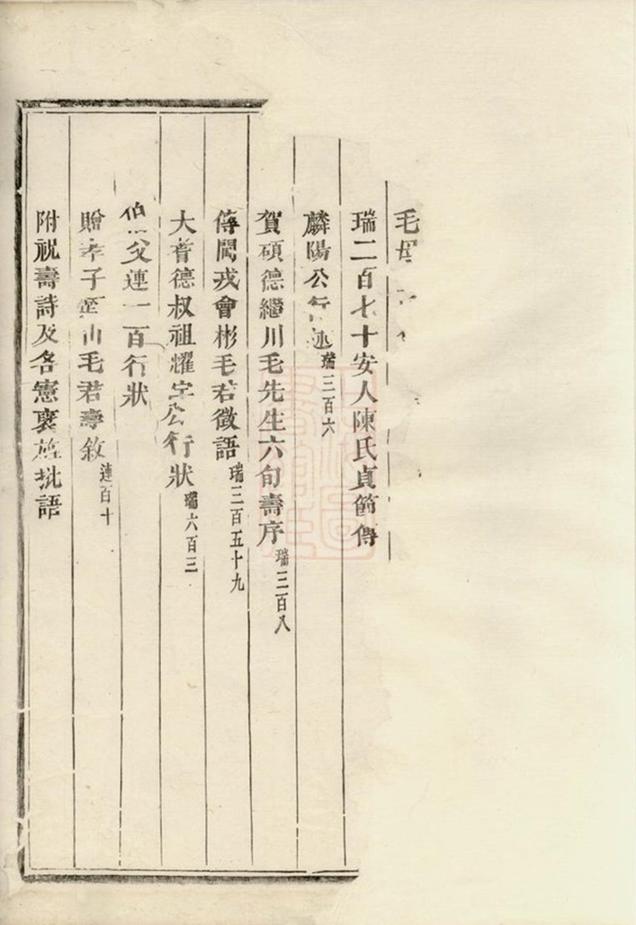 毛
瑞二百七十安人陳氏貞節傳
麟陽公行述瑞三百六
賀碩德繼川毛先生六旬壽序瑞三百八
傳聞戎會彬毛君徵語瑞三百五十九
大耆德叔祖耀宇公行狀瑞六百三
伯父連一百行狀
贈孝子山毛君壽敘連百十
附祝壽詩及各憲襃旌批語